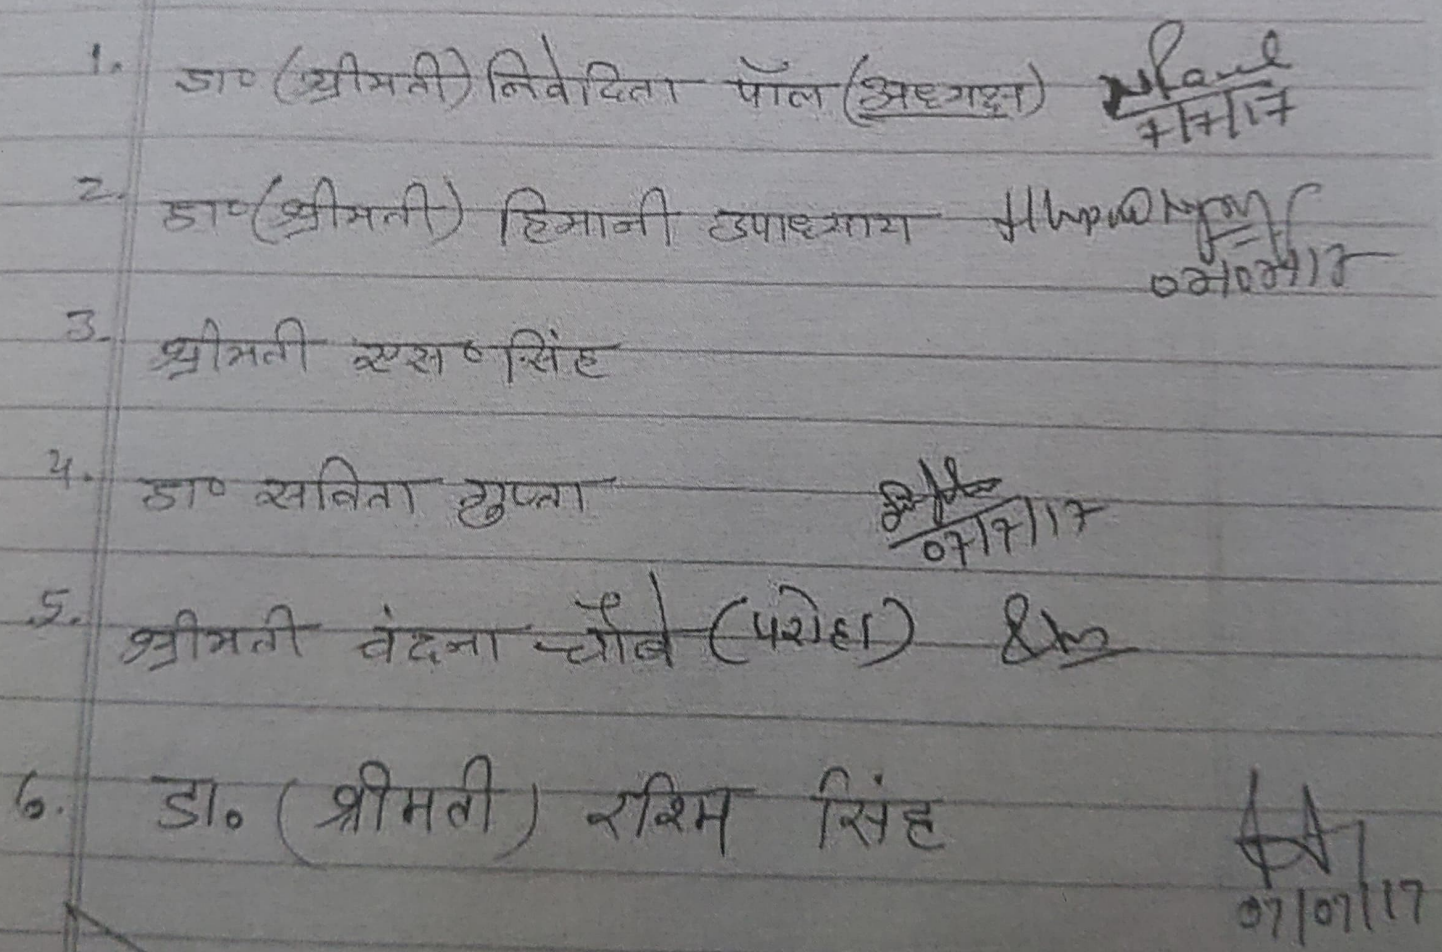 1. डा० (श्रीमती) निवेदिता पॉल (अध्यक्ष) NPaul
7/7/17
2. डा० (श्रीमती) हिमानी उपाध्याय
07/07/17
3. श्रीमती एस० सिंह
4. डा० सविता गुप्ता
07/7/17
5. श्रीमती वंदना चौबे (परोहा)
6. डा. (श्रीमती) रश्मि सिंह
07/07/17